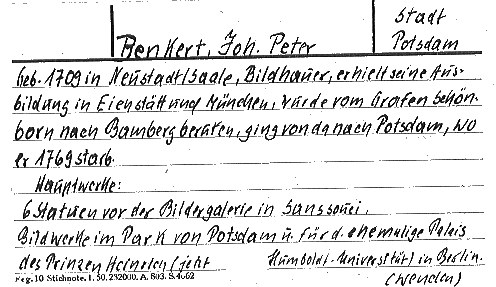 Stadt
Benkert, Joh. Peter Potsdam
Geb. 1709 in Neustadt/Saale, Bildhauer, erhielt seine Aus-
bildung in Eichstätt und München, wurde vom Grafen Schön-
born nach Bamberg berufen, ging von da nach Potsdam, wo
er 1769 starb.
Hauptwerke:
6 Statuen vor der Bildergalerie in Sanssouci.
Bildwerke im Park von Potsdam u. für d. ehemalige Palais
des Prinzen Heinrich (jetzt Humboldt-Universität) in Berlin.
(wenden)
Reg. 10 Stichnote. I. 50. 232000. A. 803. S. 4662